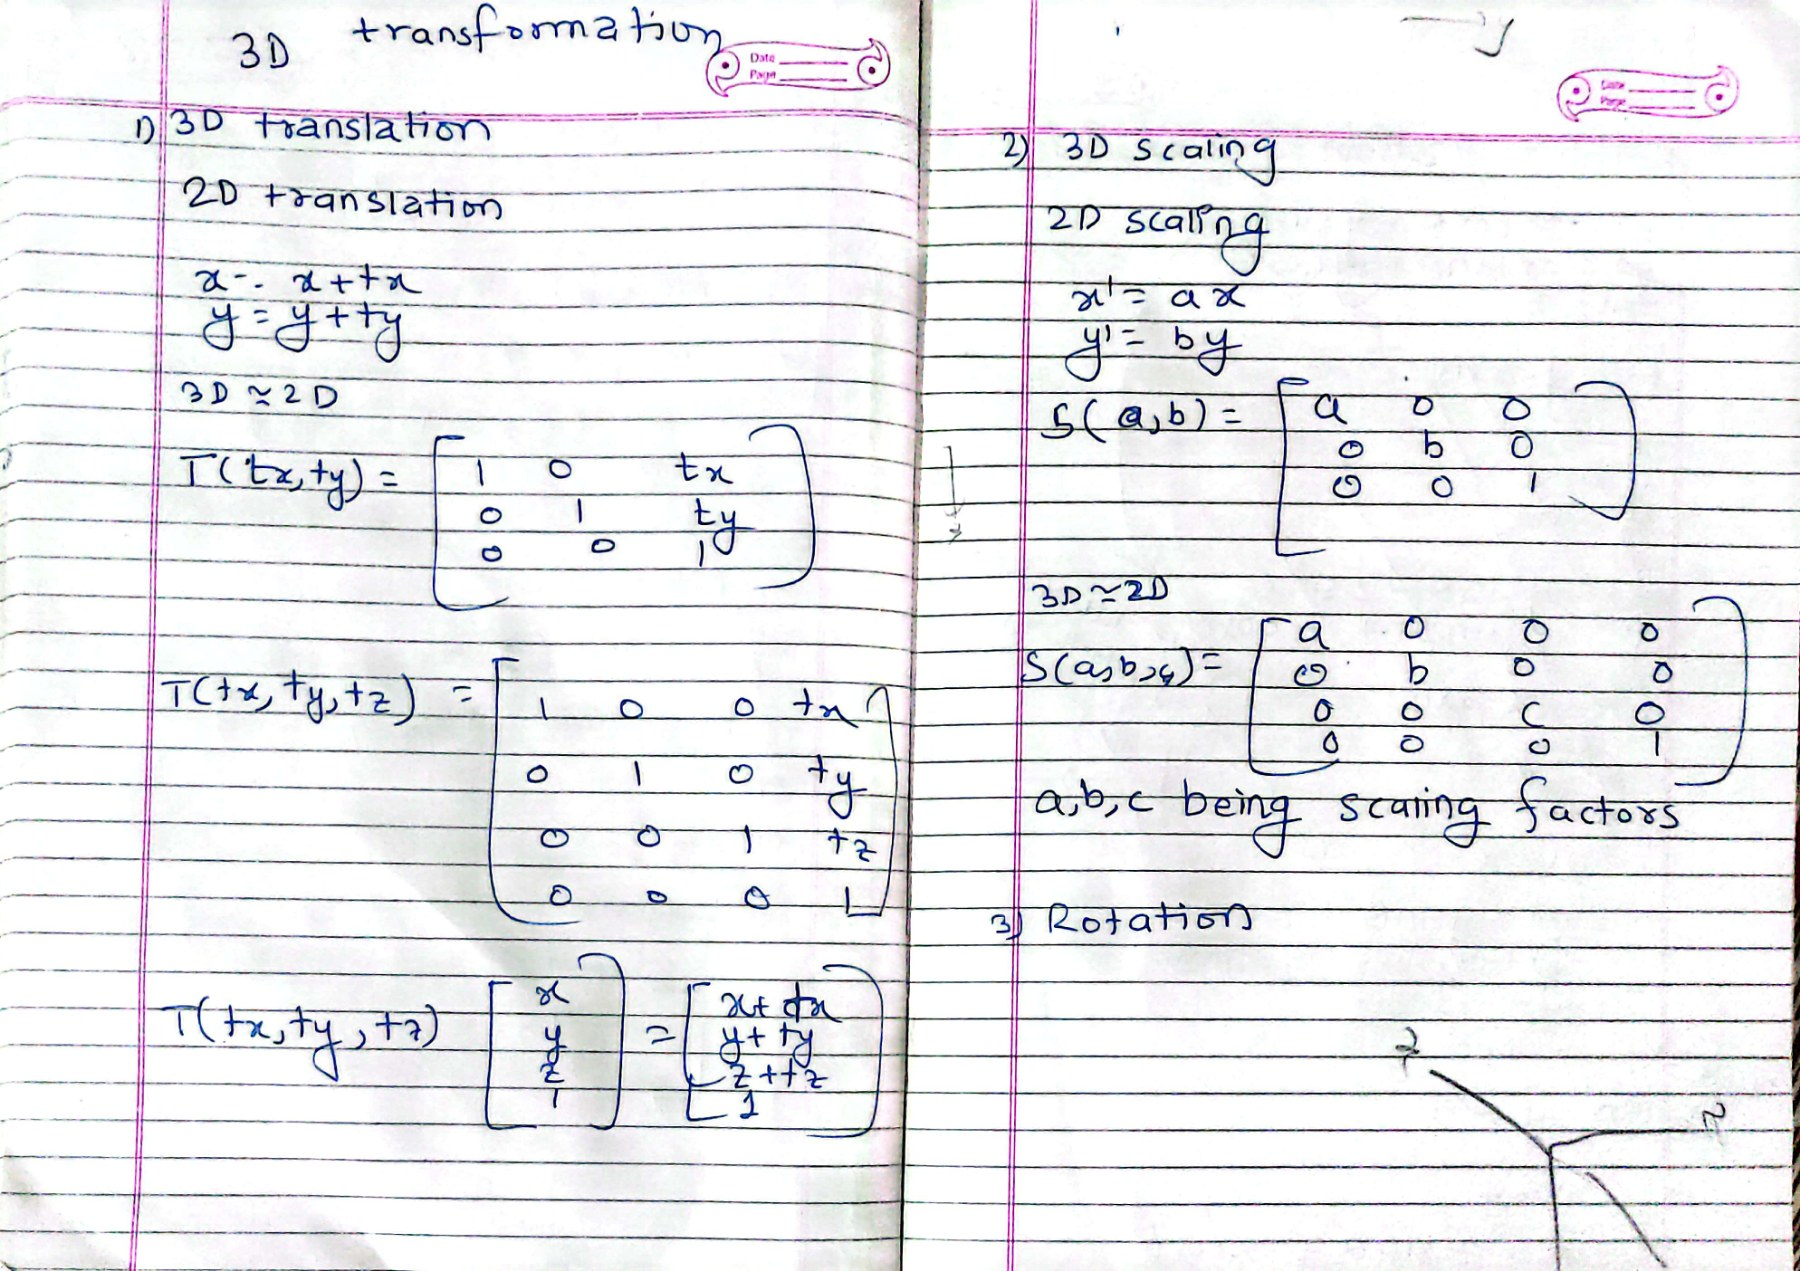 3D transformation
Date
Page
1) 3D translation
2D translation
x - . x + tx
y = y + ty
3D ≃ 2D
T(tx, ty) = [ 1 0 tx
0 1 ty
0 0 1 ]
T(tx, ty, tz) = [ 1 0 0 tx
0 1 0 ty
0 0 1 tz
0 0 0 1 ]
T(tx, ty, tz) [ x y z 1 ] = [ x + tx
y + ty
z + tz
1 ]
y
Date
Page
2) 3D scaling
2D scaling
x' = ax
y' = by
S(a,b) = [ a 0 0
0 b 0
0 0 1 ]
3D ≃ 2D
S(a,b,c) = [ a 0 0 0
0 b 0 0
0 0 c 0
0 0 0 1 ]
a,b,c being scaling factors
3) Rotation
z